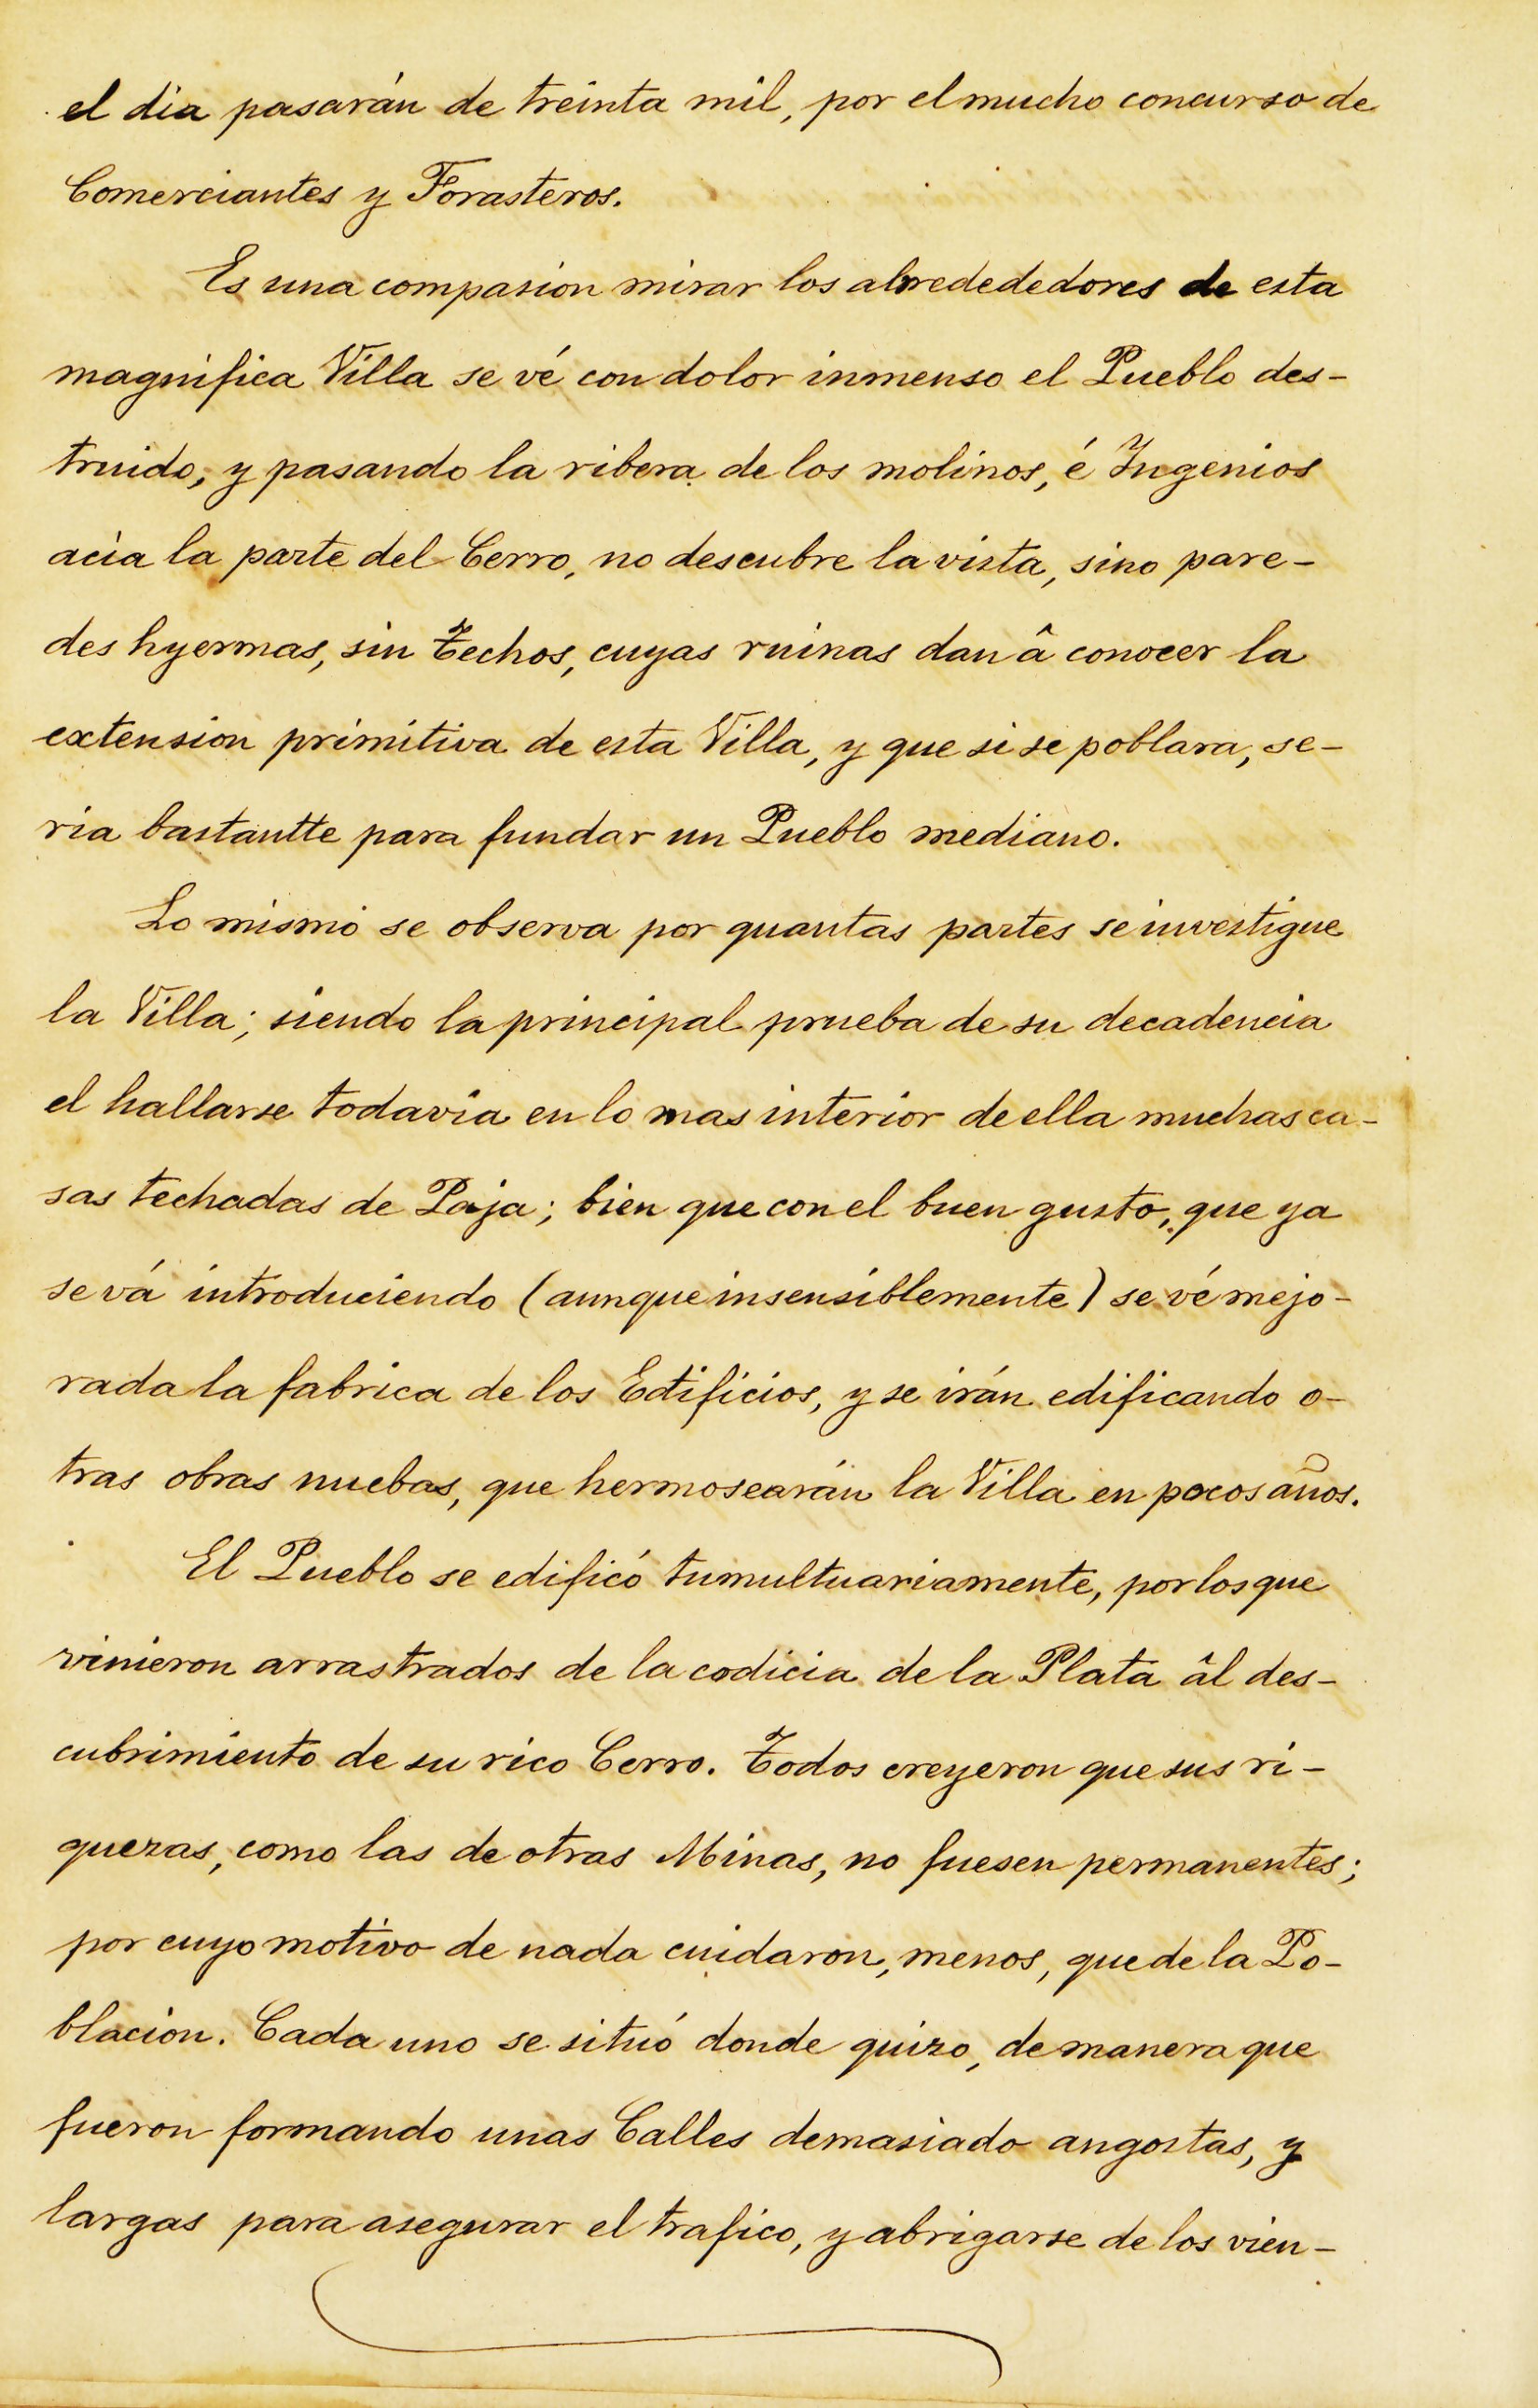 el dia pasarán de treinta mil, por el mucho concurso de
Comerciantes y Forasteros.
Es una compasion mirar los alrredededores de esta
magnifica Villa se vé con dolor inmenso el Pueblo des-
truido, y pasando la ribera de los molinos, é Ingenios
acia la parte del Cerro, no descubre la vista, sino pare-
des hyermas, sin Techos, cuyas ruinas dan â conocer la
extension primitiva de esta Villa, y que si se poblara, se-
ria bastantte para fundar un Pueblo mediano.
Lo mismo se observa por quantas partes se investigue
la Villa; siendo la principal prueba de su decadencia
el hallarse todavia en lo mas interior de ella muchas ca-
sas techadas de Paja; bien que con el buen gusto, que ya
se vá introduciendo (aunque insensiblemente) se vé mejo-
rada la fabrica de los Edificios, y se irán edificando o-
tras obras nuebas, que hermosearán la Villa en pocos años.
El Pueblo se edificó tumultuariamente, por los que
vinieron arrastrados de la codicia de la Plata âl des-
cubrimiento de su rico Cerro. Todos creyeron que sus ri-
quezas, como las de otras Minas, no fuesen permanentes;
por cuyo motivo de nada cuidaron, menos, que de la Po-
blacion. Cada uno se situó donde quizo, de manera que
fueron formando unas Calles demasiado angostas, y
largas para asegurar el trafico, y abrigarse de los vien-